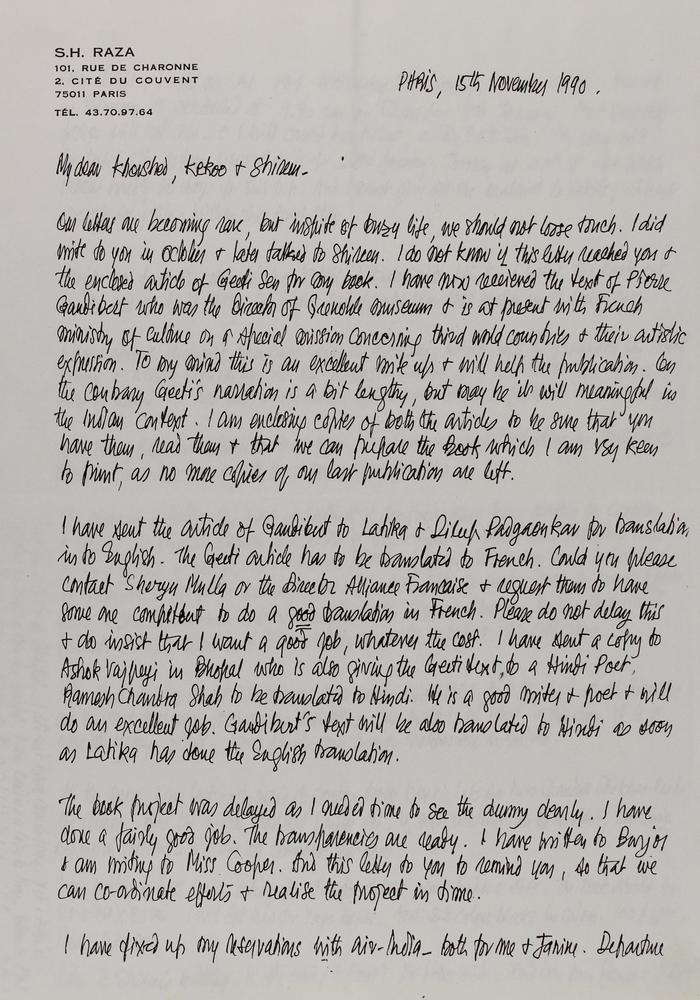 S.H. RAZA
101, RUE DE CHARONNE
2, CITÉ DU COUVENT
75011 PARIS
TÉL. 43.70.97.64
PARIS, 15th November 1990.
My dear Khorshed, Kekoo + Shireen-
Our letters are becoming rare, but inspite of buzy life, we should not loose touch. I did
write to you in october + later talked to Shireen. I do not know if this letter reached you +
the enclosed article of Geeti Sen for my book. I have now received the text of Pierre
Gaudibert who was the Director of Grenoble museum + is at present with French
ministry of culture on a special mission concerning third world countries + their artistic
expression. To my mind this is an excellent write up + will help the publication. On
the contrary Geeti's narration is a bit lengthy, but may be it will meaningful in
the Indian context. I am enclosing copies of both the articles to be sure that you
have them, read them + that we can prepare the book which I am very keen
to print, as no more copies of our last publication are left.
I have sent the article of Gaudibert to Latika + Dileep Padgaonkar for translation
in to English. The Geeti article has to be translated to French. Could you please
contact Sheryn Mulla or the Director Alliance Francaise + request them to have
some one competent to do a good translation in French. Please do not delay this
+ do insist that I want a good job, whatever the cost. I have sent a copy to
Ashok Vajpeyi in Bhopal who is also giving the Geeti text, to a Hindi Poet,
Ramesh Chandra Shah to be translated to Hindi. He is a good writer + poet + will
do an excellent job. Gaudibert's text will be also translated to Hindi as soon
as Latika has done the English translation.
The book project was delayed as I needed time to see the dummy clearly. I have
done a fairly good job. The transparencies are ready. I have written to Burjor
+ am writing to Miss Cooper. And this letter to you to remind you, so that we
can co-ordinate efforts + realise the project in time.
I have fixed up my reservations with air-India_ both for me + Janine. Departure